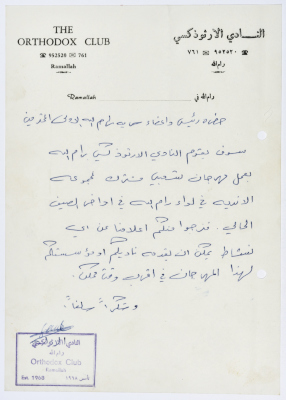 THE
ORTHODOX CLUB
☎ 952520 ✉ 761
Ramallah
النادي الارثوذكسي
☎ ٩٥٢٥٢٠ ✉ ٧٦١
رام الله
Ramallah
رام الله في
حضرة رئيس واعضاء رام الله المحترمين
سوف يقوم النادي الارثوذكسي رام الله
بعمل مهرجان شعبي مشترك لمجموعة
الاندية في لواء رام الله في اواخر الصيف
الحالي. نرجوا منكم اعلامنا عن اي
نشاط يمكن ان يقدمه ناديكم او مؤسستكم
لهذا المهرجان في اقرب وقت ممكن.
وشكراً سلفاً
النادي الارثوذكسي
رام الله
Orthodox Club
Ramallah
Est. 1960